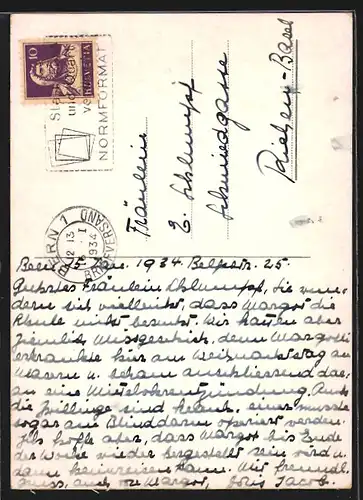 10
HELVETIA
NORMFORMAT
BERN 1
BRIEFVERSAND
1934
Fräulein
E. Schlumpf
Schmiedgasse
Riehen-Basel
Bern, 15. Jan. 1934. Belpstr. 25.
Geehrtes Fräulein Schlumpf, Sie wun-
dern sich vielleicht, dass Margot die
Schule nicht besucht. Wir hatten aber
ziemlich Missgeschick, denn Margot
erkrankte hier am Weihnachtstag an
Masern u. bekam anschliessend da-
an eine Mittelohrentzündung. Auch
die Zwillinge sind krank, einer musste
sogar am Blinddarm operiert werden.
Ich hoffe aber, dass Margot bis Ende
der Woche wieder hergestellt sein wird u.
dann heimreisen kann. Mit freundl.
Gruss, auch von Margot, Jacob.